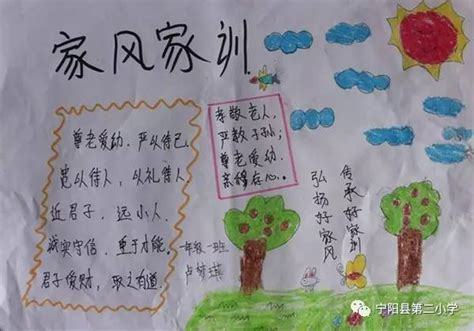 家风家训
尊老爱幼、严以待己
宽以待人，以礼待人
近君子，远小人
诚实守信、重于才能
君子爱财，取之有道
孝敬老人，
严教子孙；
尊老爱幼
一年级一班
弘扬好家风
传承好家训
宁阳县第二小学